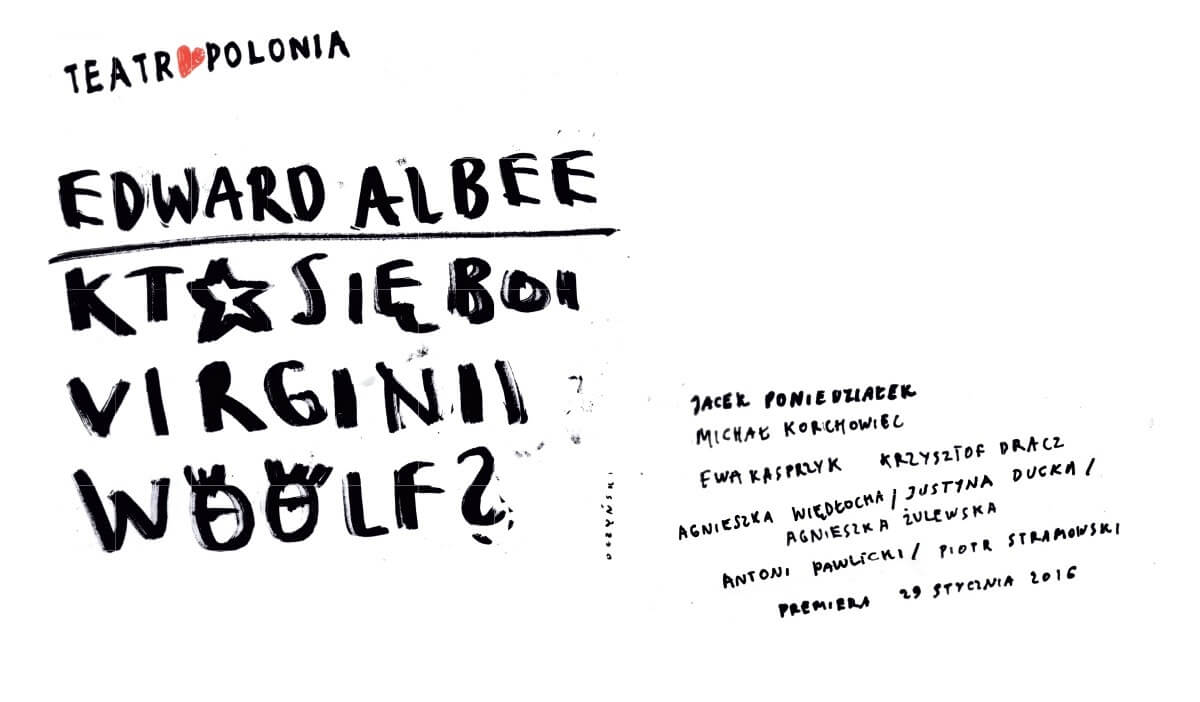 TEATR POLONIA
EDWARD ALBEE
KTO SIĘ BOI
VIRGINII
WOOLF?
JACEK PONIEDZIAŁEK
MICHAŁ KORCHOWIEC
EWA KASPRZYK KRZYSZTOF DRACZ
AGNIESZKA WIĘDŁOCHA / JUSTYNA DUCKA /
AGNIESZKA ŻULEWSKA
ANTONI PAWLICKI / PIOTR STRAMOWSKI
PREMIERA 29 STYCZNIA 2016